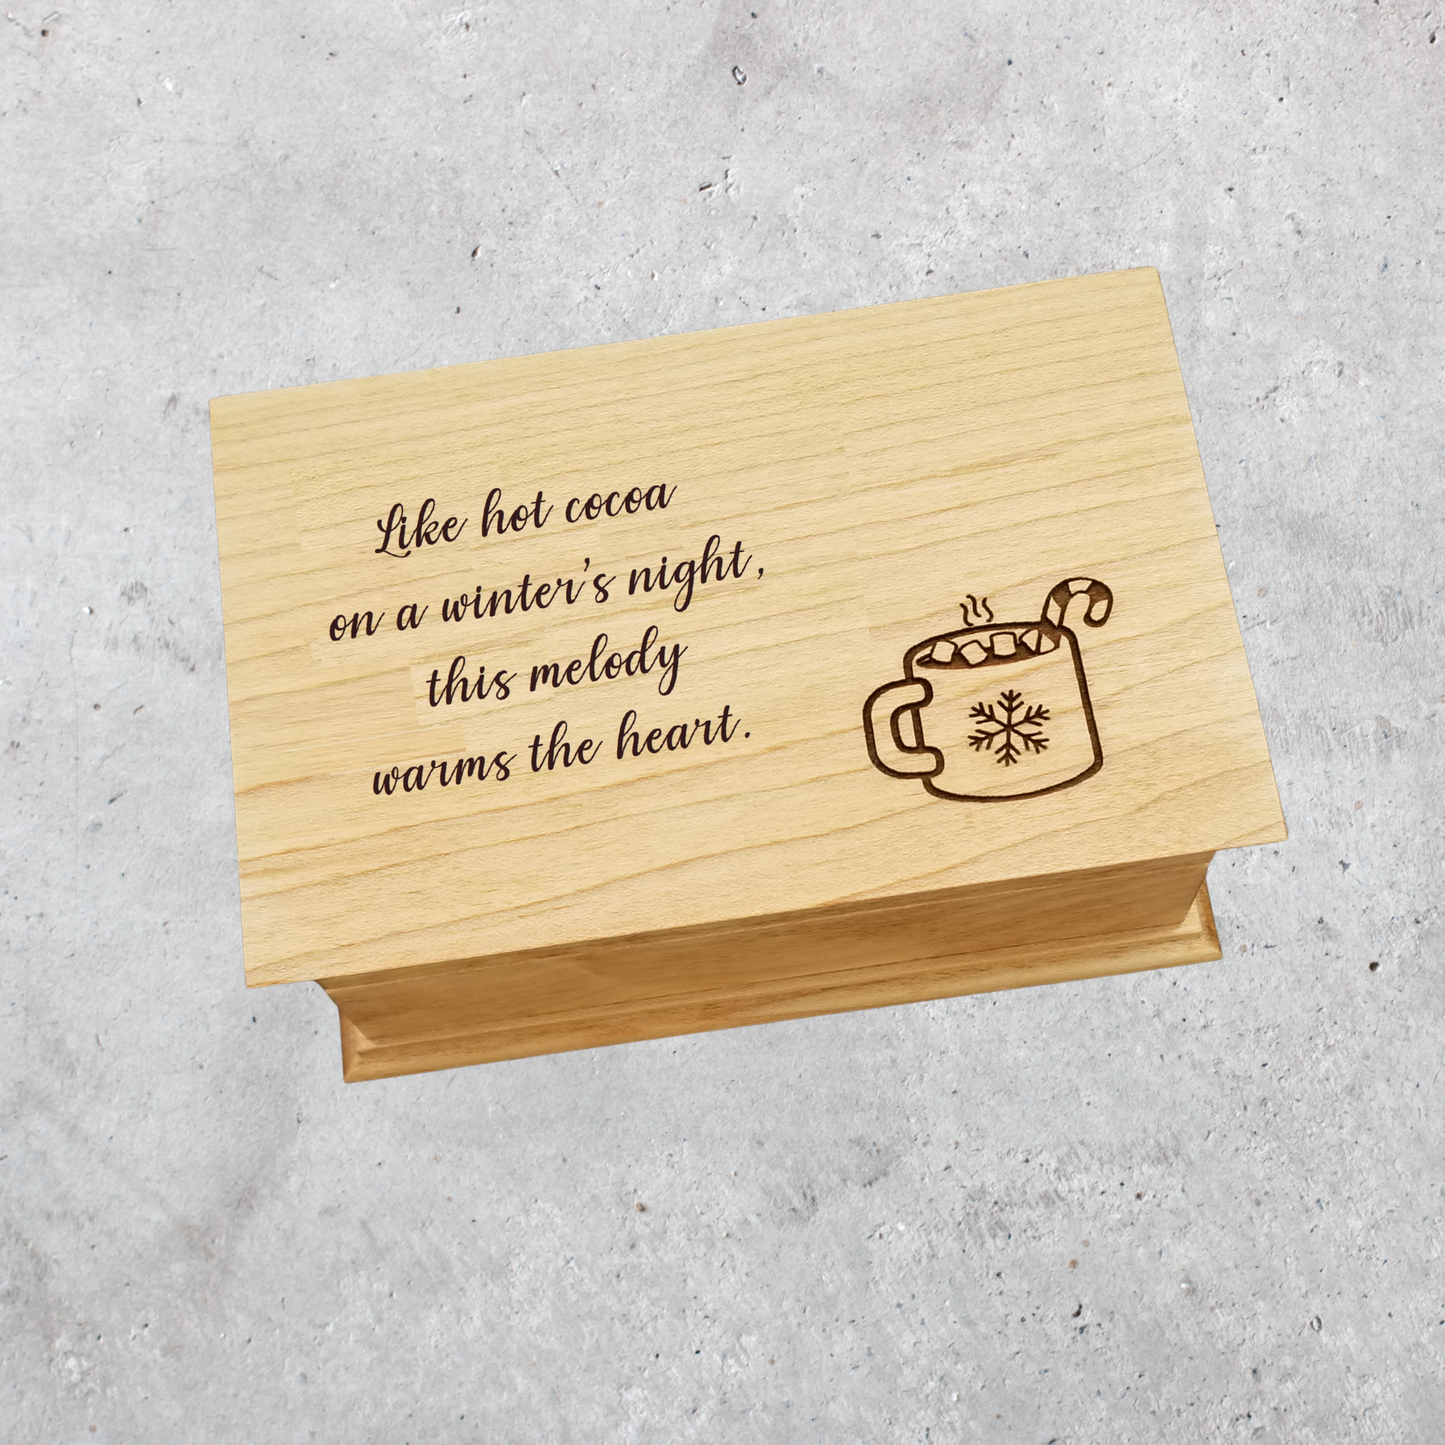 Like hot cocoa
on a winter's night,
this melody
warms the heart.